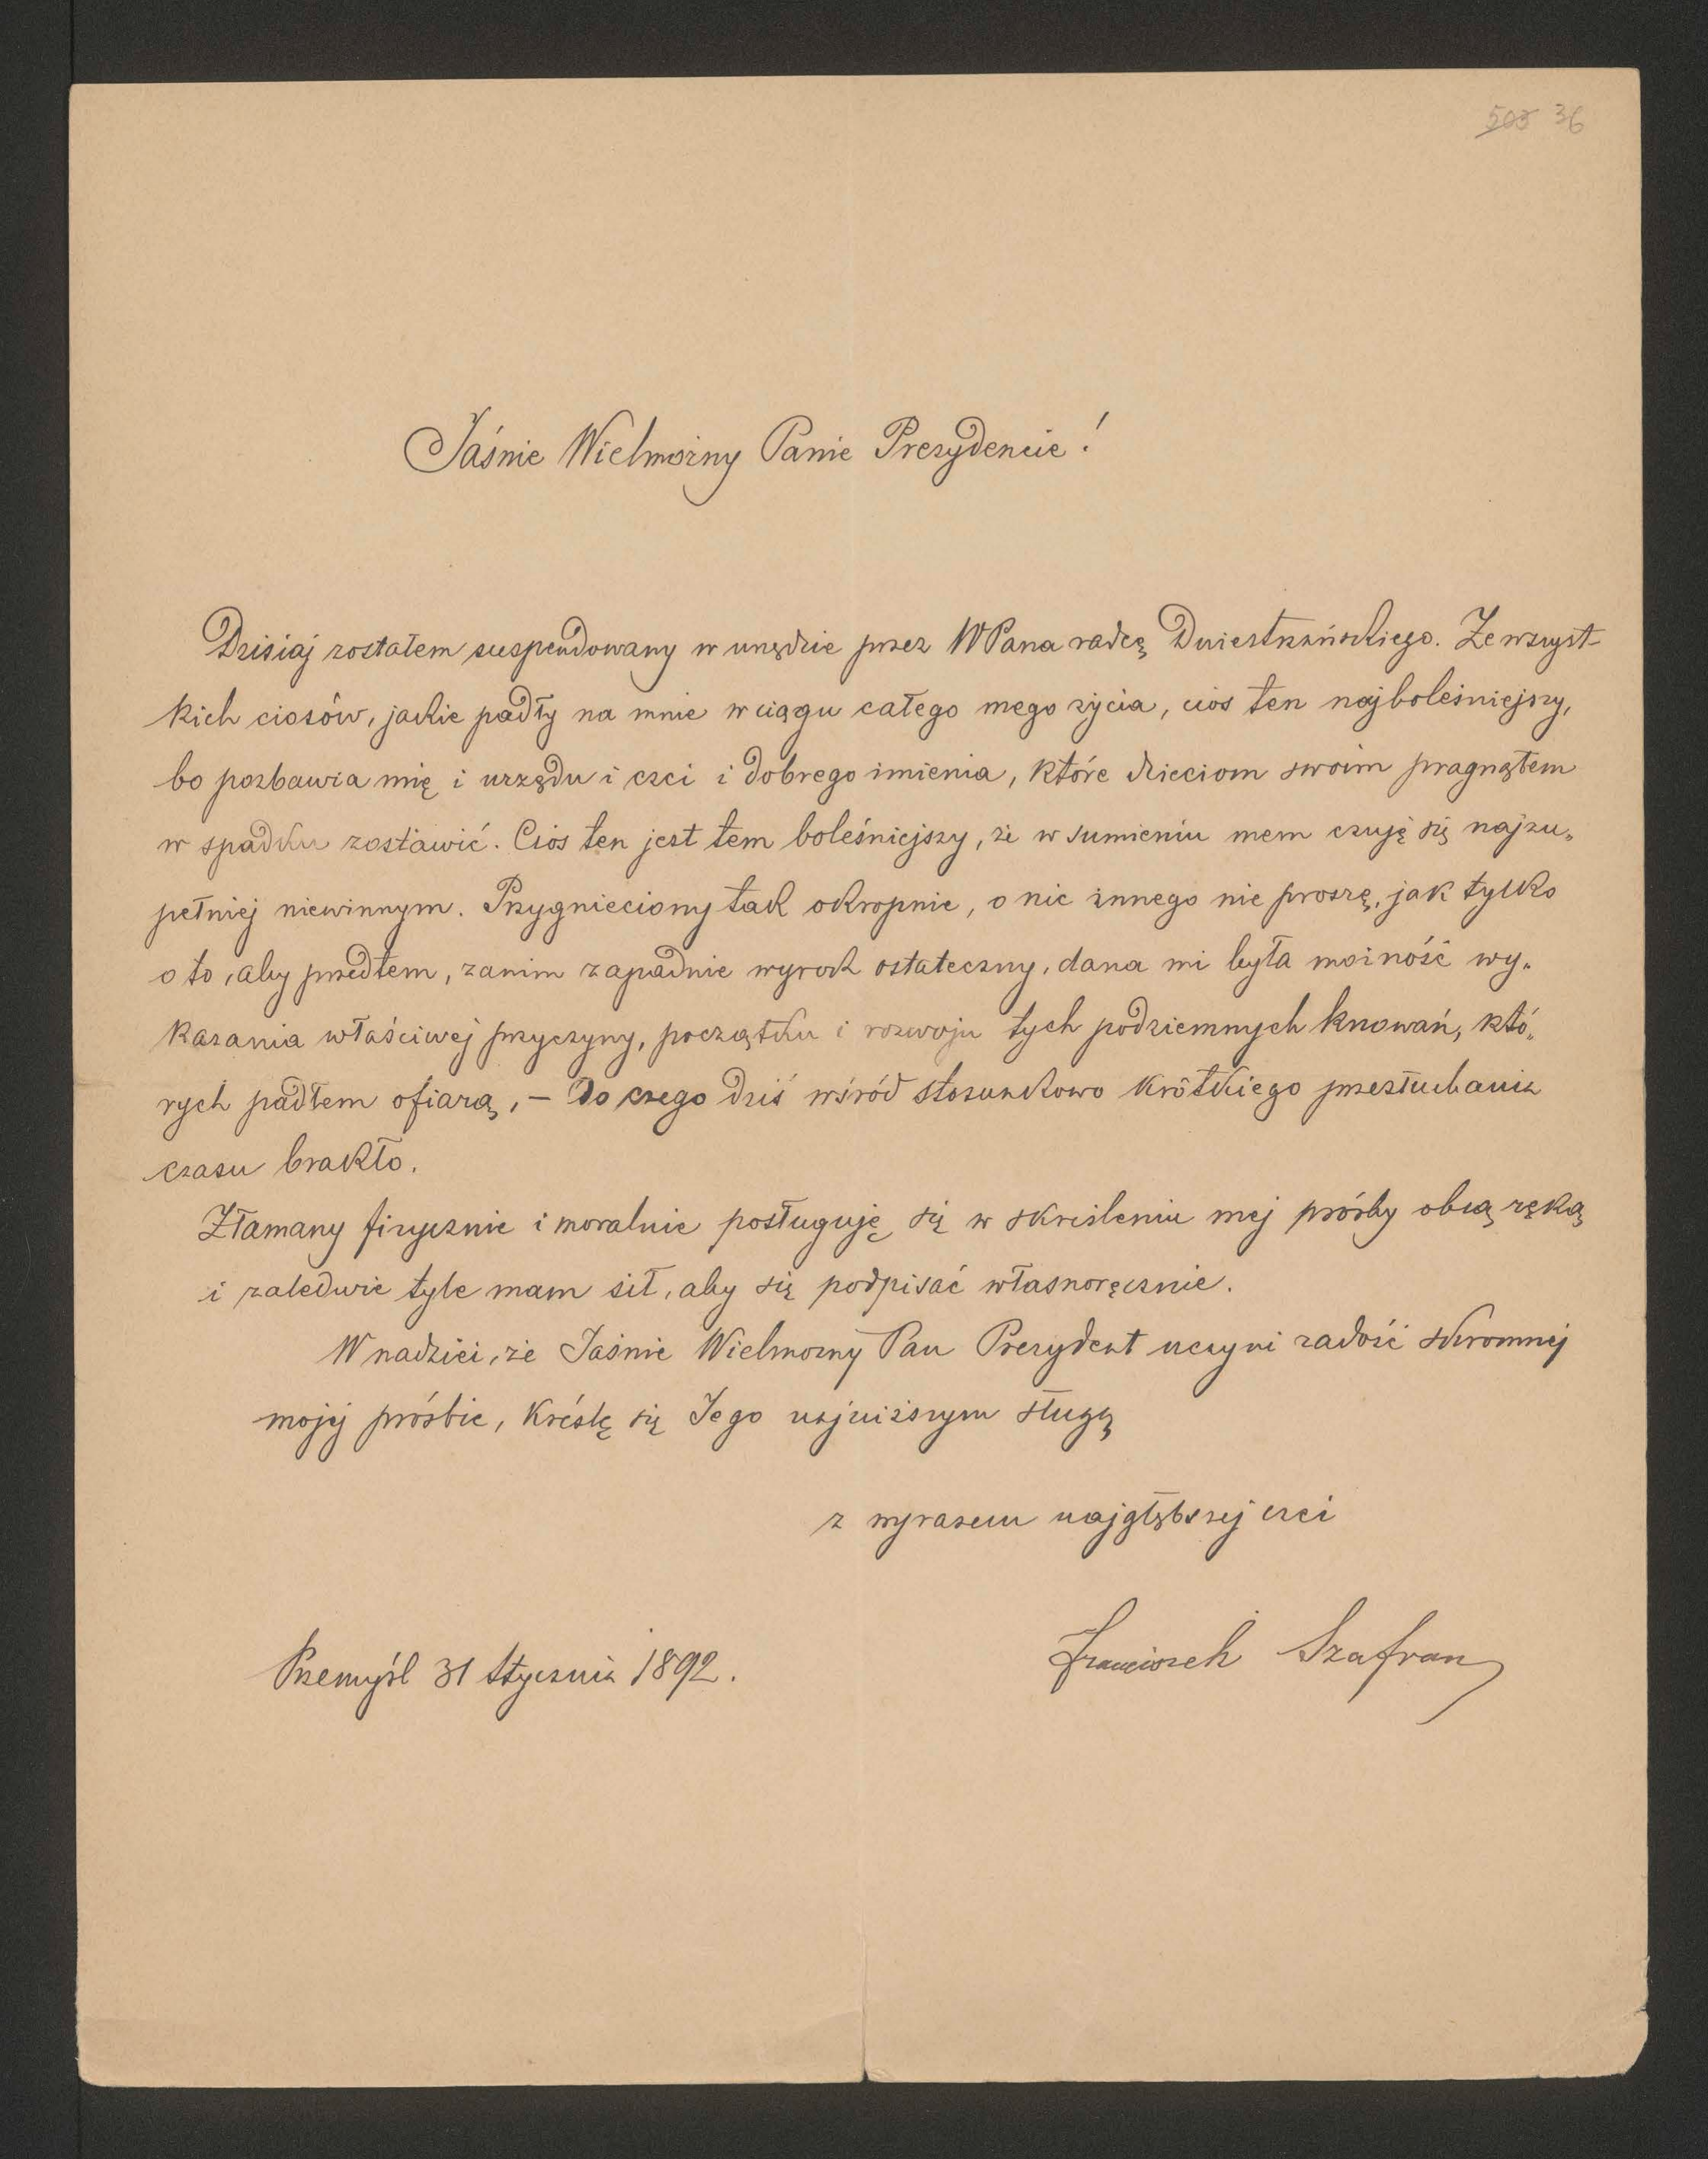 503 36
Jaśnie Wielmożny Panie Prezydencie!
Dzisiaj zostałem suspendowany w urzędzie przez WPana radcę Dniestrzańskiego. Ze wszyst-
kich ciosów, jakie padły na mnie w ciągu całego mego życia, cios ten najboleśniejszy,
bo pozbawia mię i urzędu i czci i dobrego imienia, które dzieciom swoim pragnąłem
w spadku zostawić. Cios ten jest tem boleśniejszy, że w sumieniu mem czuję się najzu„
pełniej niewinnym. Przygnieciony tak okropnie, o nic innego nie proszę, jak tylko
o to, aby przedtem, zanim zapadnie wyrok ostateczny, dana mi była możność wy„
kazania właściwej przyczyny, początku i rozwoju tych podziemnych knowań, któ„
rych padłem ofiarą, – do czego dziś wśród stosunkowo krótkiego przesłuchania
czasu brakło.
Złamany fizycznie i moralnie posługuję się w skreśleniu mej prośby obcą ręką
i zaledwie tyle mam sił, aby się podpisać własnoręcznie.
W nadziei, że Jaśnie Wielmożny Pan Prezydent uczyni zadość skromnej
mojej prośbie, kreślę się Jego najniższym sługą
z wyrazem najgłębszej czci
Franciszek Szafran
Przemyśl 31 Stycznia 1892.